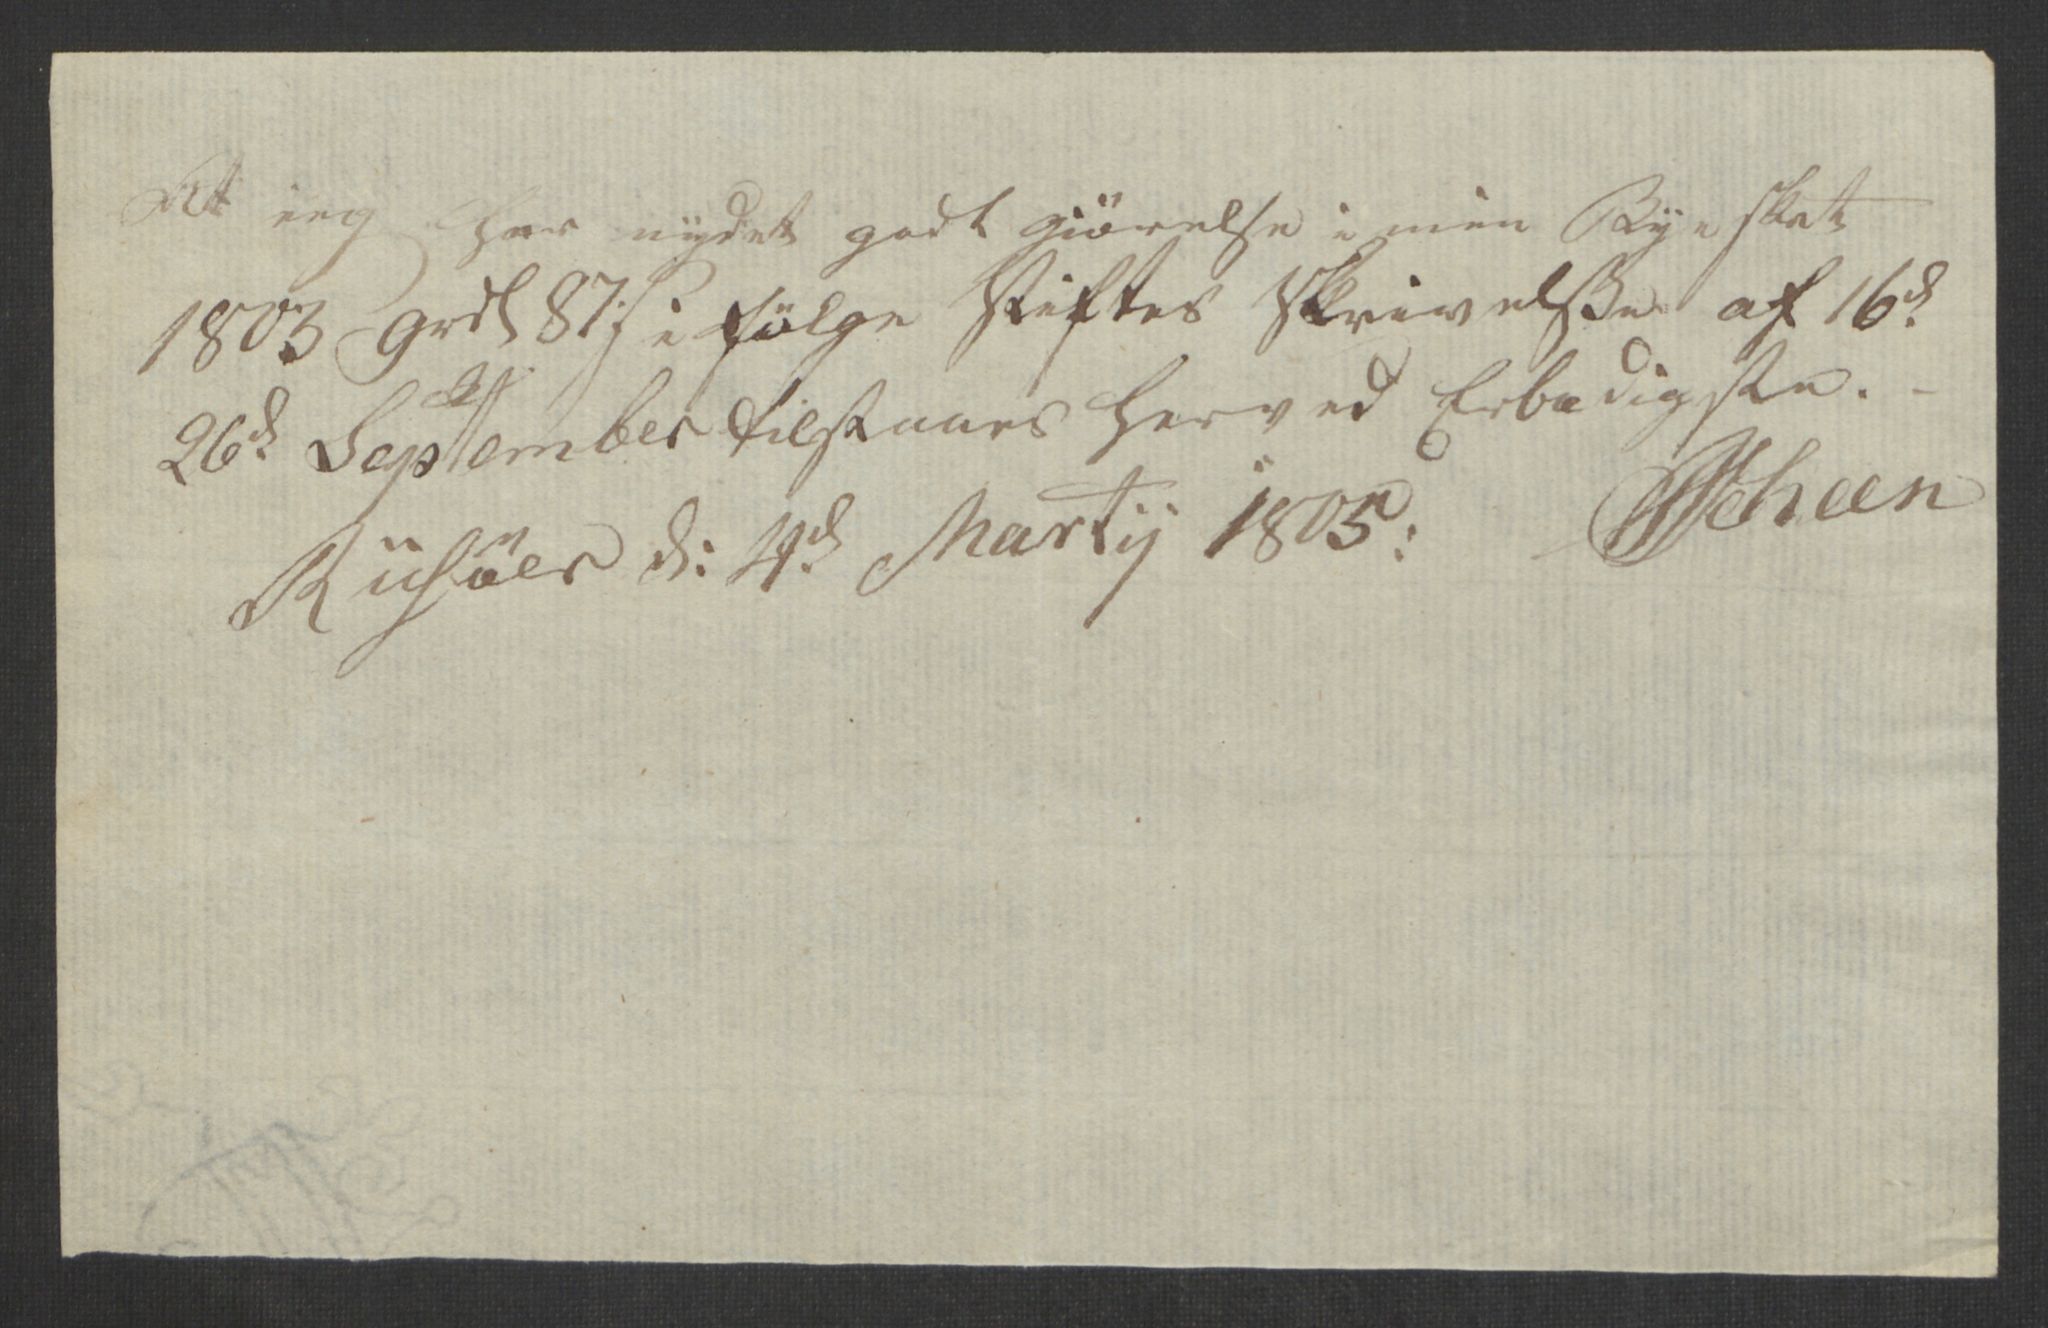 At ieg har nydet godt giörelse i min Bye skat
1803 9rdl 87s i følge Stiftes Skrivelsse af 16d
26d September tilstaaes herved Erbødigste. -
Riisöer d: 4d Martij 1805: Scheen